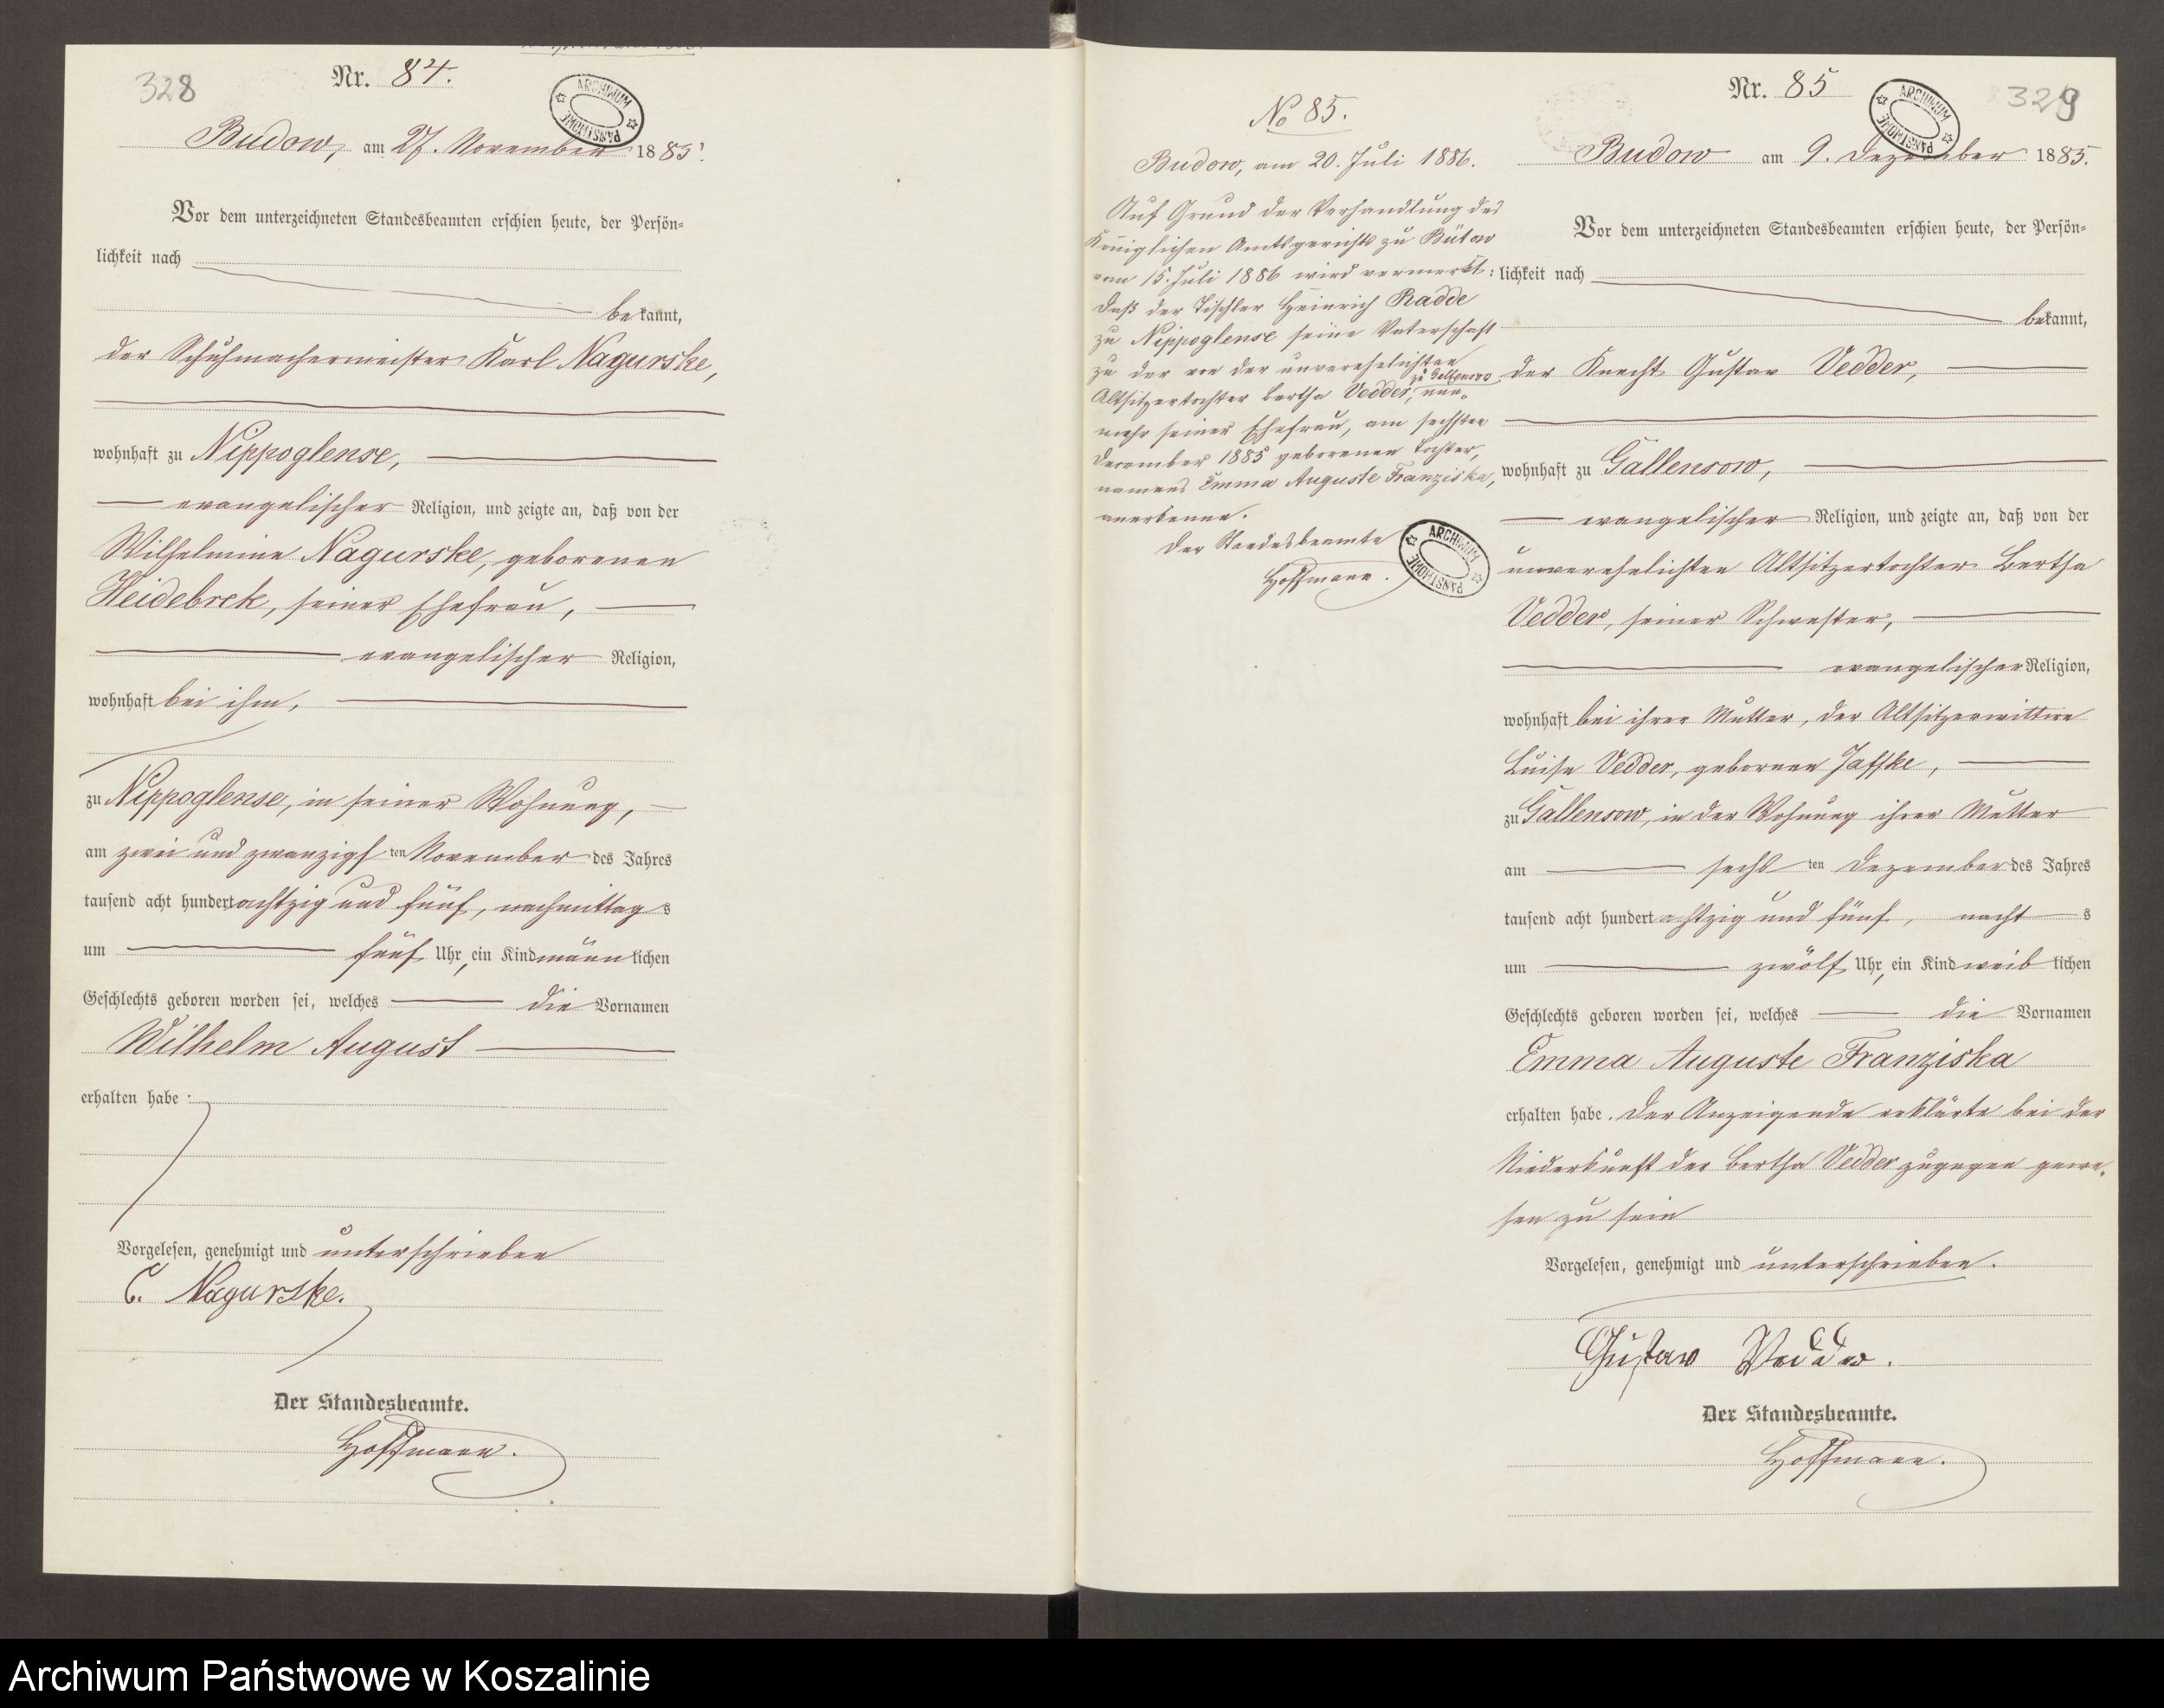 328
Nr. 84.
ARCHIWUM PAŃSTWOWE
Budow, am 27. November 1885.
Vor dem unterzeichneten Standesbeamten erschien heute, der Persön-
lichkeit nach
bekannt,
der Schuhmachermeister Karl Nagurske,
wohnhaft zu Nippoglense,
evangelischer Religion, und zeigte an, daß von der
Wilhelmine Nagurske, geborenen
Heidebrek, seiner Ehefrau,
evangelischer Religion,
wohnhaft bei ihm,
zu Nippoglense, in seiner Wohnung,
am zwei und zwanzigsten November des Jahres
tausend acht hundert achtzig und fünf, nachmittags
um fünf Uhr, ein Kind männlichen
Geschlechts geboren worden sei, welches die Vornamen
Wilhelm August
erhalten habe.
Vorgelesen, genehmigt und unterschrieben
C. Nagurske.
Der Standesbeamte.
Hoffmann.
No 85.
Budow, am 20. Juli 1886.
Auf Grund der Verhandlung des
Königlichen Amtsgerichts zu Bütow
vom 15. Juli 1886 wird vermerkt:
daß der Tischler Heinrich Radde
zu Nippoglense seine Vaterschaft
zu der von der unverehelichten
Altsitzertochter Bertha Vedder, zu Gallensow nun-
mehr seiner Ehefrau, am sechsten
Dezember 1885 geborenen Tochter,
namens Emma Auguste Franziska,
anerkenne.
Der Standesbeamte
Hoffmann.
ARCHIWUM PAŃSTWOWE
Nr. 85
329
ARCHIWUM PAŃSTWOWE
Budow am 9. Dezember 1885.
Vor dem unterzeichneten Standesbeamten erschien heute, der Persön-
lichkeit nach
bekannt,
der Knecht Gustav Vedder,
wohnhaft zu Gallensow,
evangelischer Religion, und zeigte an, daß von der
unverehelichten Altsitzertochter Bertha
Vedder, seiner Schwester,
evangelischer Religion,
wohnhaft bei ihrer Mutter, der Altsitzerwittwe
Luise Vedder, geborenen Jaffke,
zu Gallensow, in der Wohnung ihrer Mutter
am sechsten Dezember des Jahres
tausend acht hundert achtzig und fünf, nachts
um zwölf Uhr, ein Kind weiblichen
Geschlechts geboren worden sei, welches die Vornamen
Emma Auguste Franziska
erhalten habe. Der Anzeigende erklärte bei der
Niederkunft der Bertha Vedder zugegen gewe-
sen zu sein
Vorgelesen, genehmigt und unterschrieben.
Gustav Vedder.
Der Standesbeamte.
Hoffmann.
Archiwum Państwowe w Koszalinie